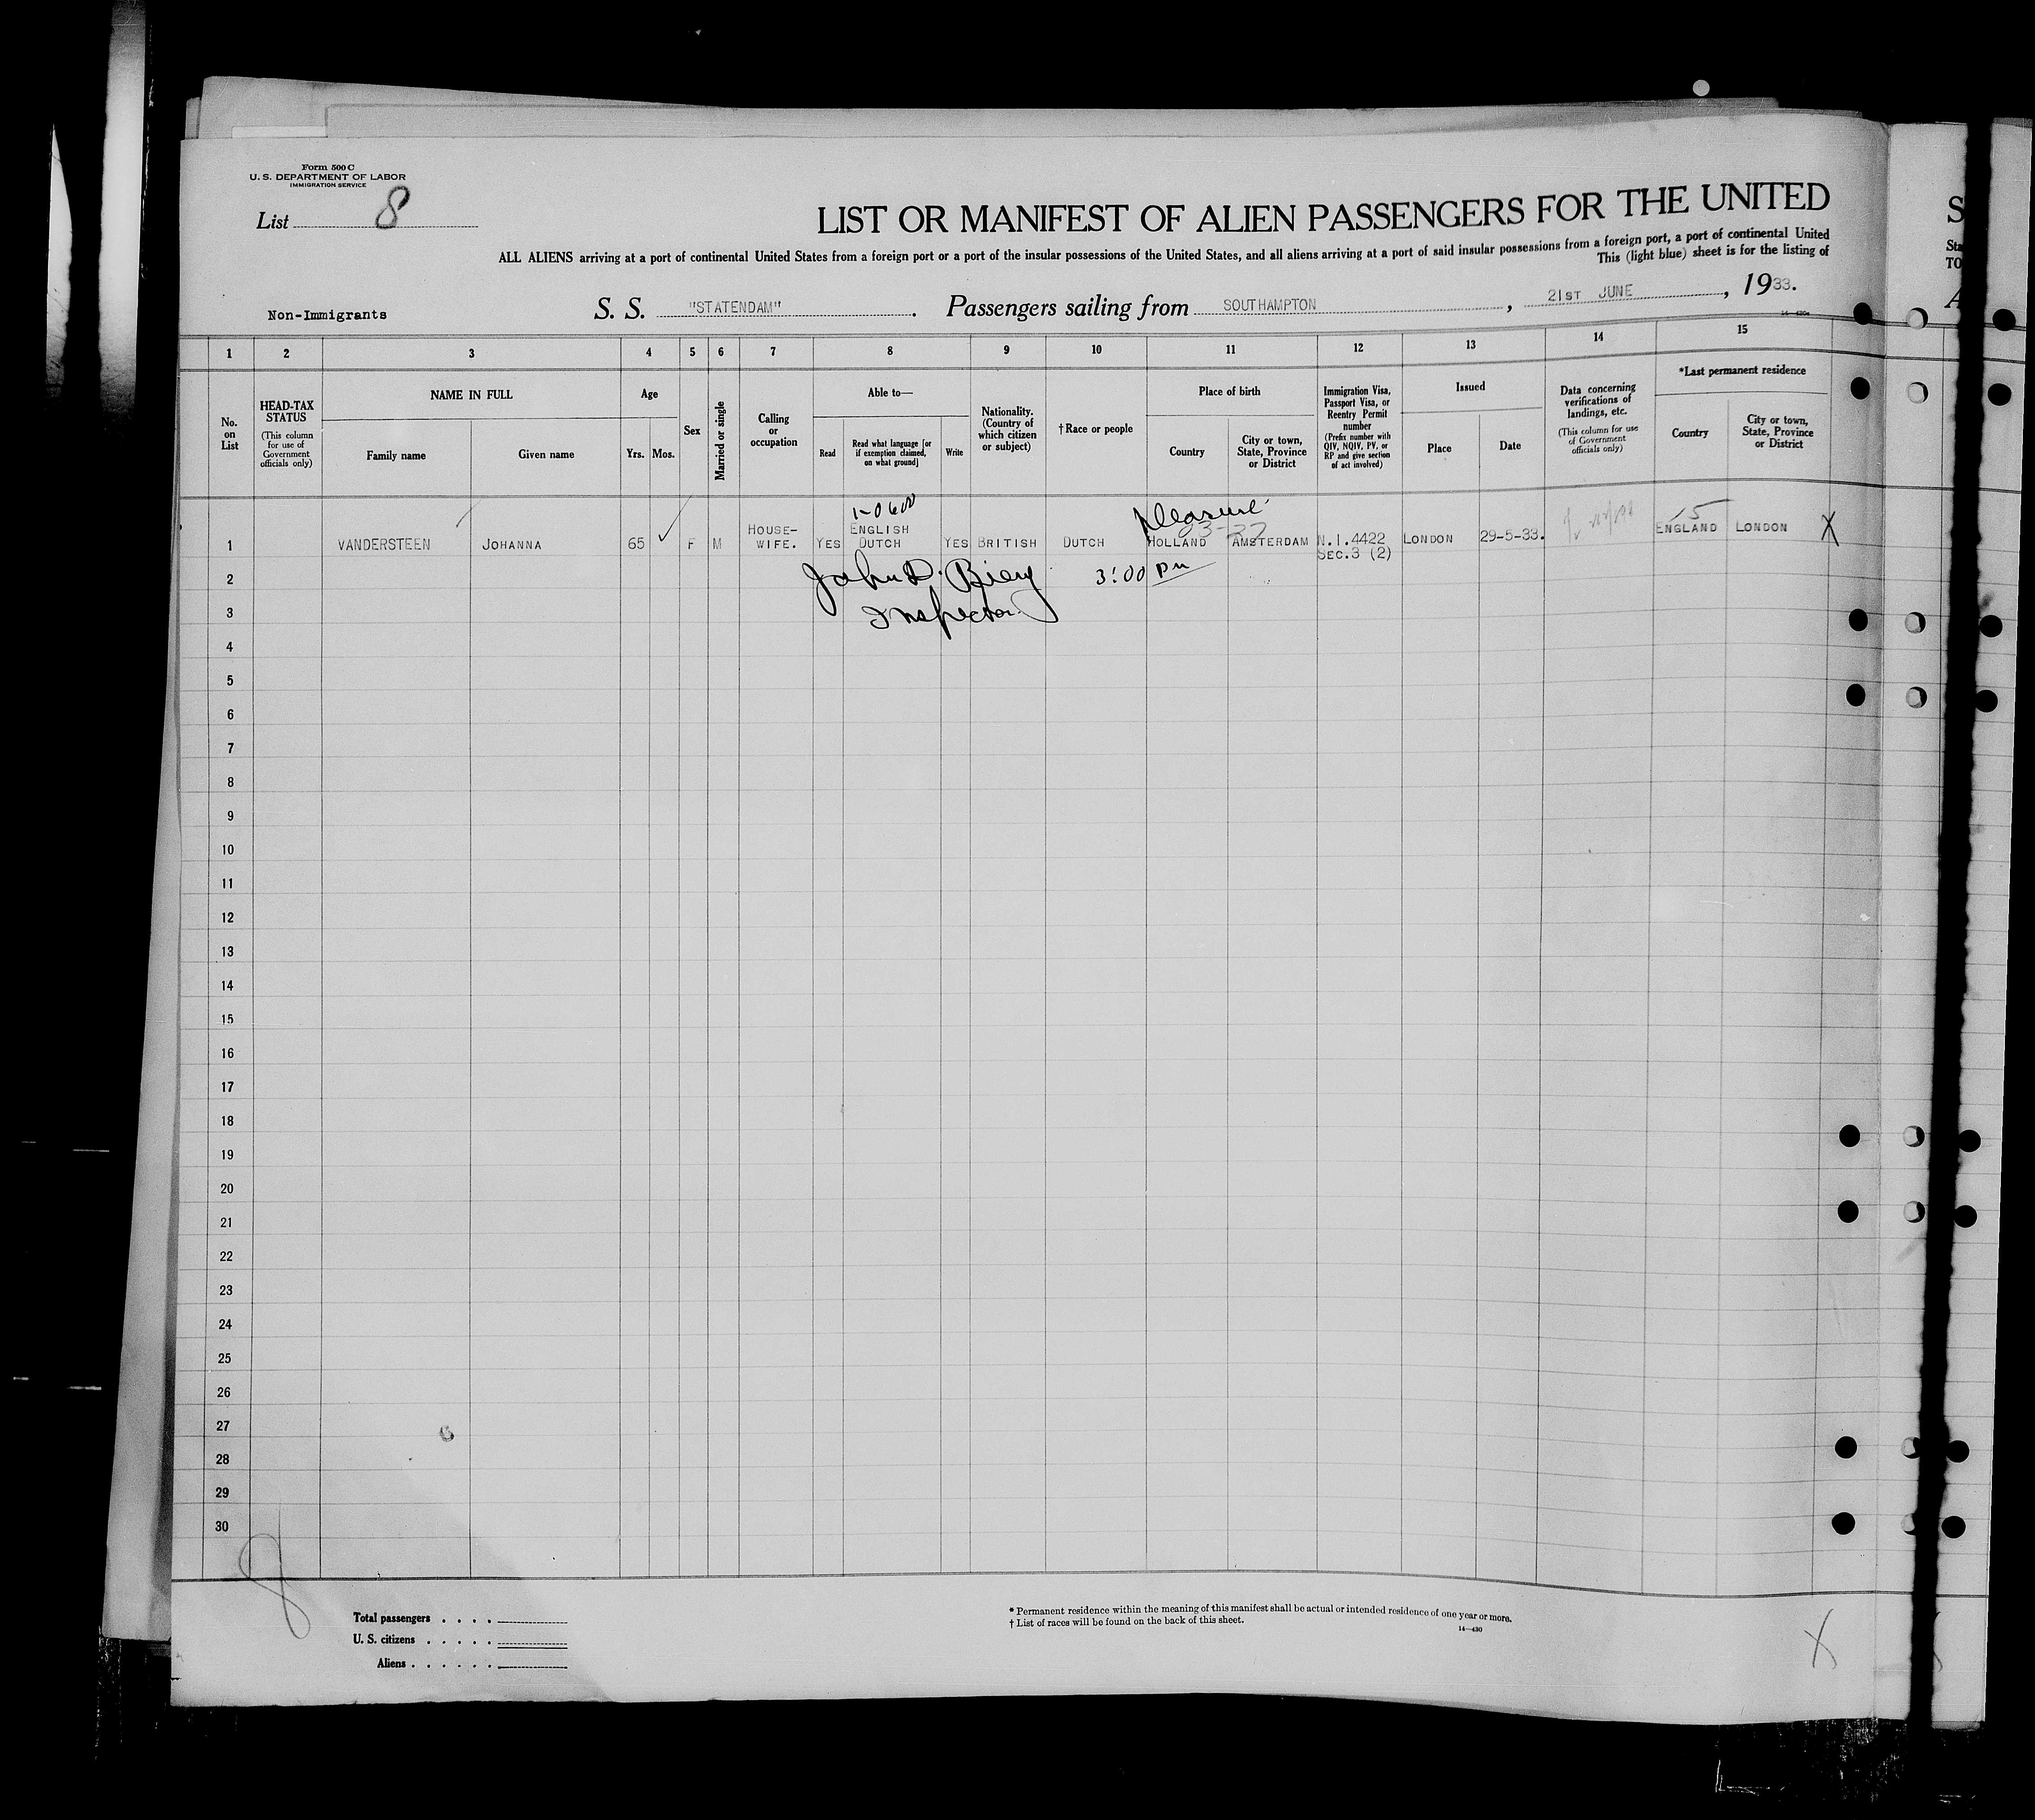 Form 500 C
U. S. DEPARTMENT OF LABOR
IMMIGRATION SERVICE
List 8
LIST OR MANIFEST OF ALIEN PASSENGERS FOR THE UNITED
ALL ALIENS arriving at a port of continental United States from a foreign port or a port of the insular possessions of the United States, and all aliens arriving at a port of said insular possessions from a foreign port, a port of continental United
This (light blue) sheet is for the listing of
Non-Immigrants S. S. "STATENDAM". Passengers sailing from SOUTHAMPTON, 21ST JUNE, 1933.
1 2 3 4 5 6 7 8 9 10 11 12 13 14 15
No. on List
HEAD-TAX STATUS
(This column for use of Government officials only)
NAME IN FULL
Family name
Given name
Age
Yrs. Mos.
Sex
Married or single
Calling or occupation
Able to—
Read
Read what language [or if exemption claimed, on what ground]
Write
Nationality. (Country of which citizen or subject)
†Race or people
Place of birth
Country
City or town, State, Province or District
Immigration Visa, Passport Visa, or Reentry Permit number
(Prefix number with QIV, NQIV, PV, or RP and give section of act involved)
Issued
Place
Date
Data concerning verifications of landings, etc.
(This column for use of Government officials only)
*Last permanent residence
Country
City or town, State, Province or District
pleasure
15
1 VANDERSTEEN JOHANNA 65 F M HOUSE-WIFE. YES ENGLISH DUTCH YES BRITISH DUTCH HOLLAND AMSTERDAM N.I.4422 SEC.3 (2) LONDON 29-5-33. ENGLAND LONDON X
2 John D. 3:00 pm
3 Inspector
4
5
6
7
8
9
10
11
12
13
14
15
16
17
18
19
20
21
22
23
24
25
26
27
28
29
30
8
Total passengers . . . .
U. S. citizens . . . . .
Aliens . . . . . .
* Permanent residence within the meaning of this manifest shall be actual or intended residence of one year or more.
† List of races will be found on the back of this sheet.
14—430
X